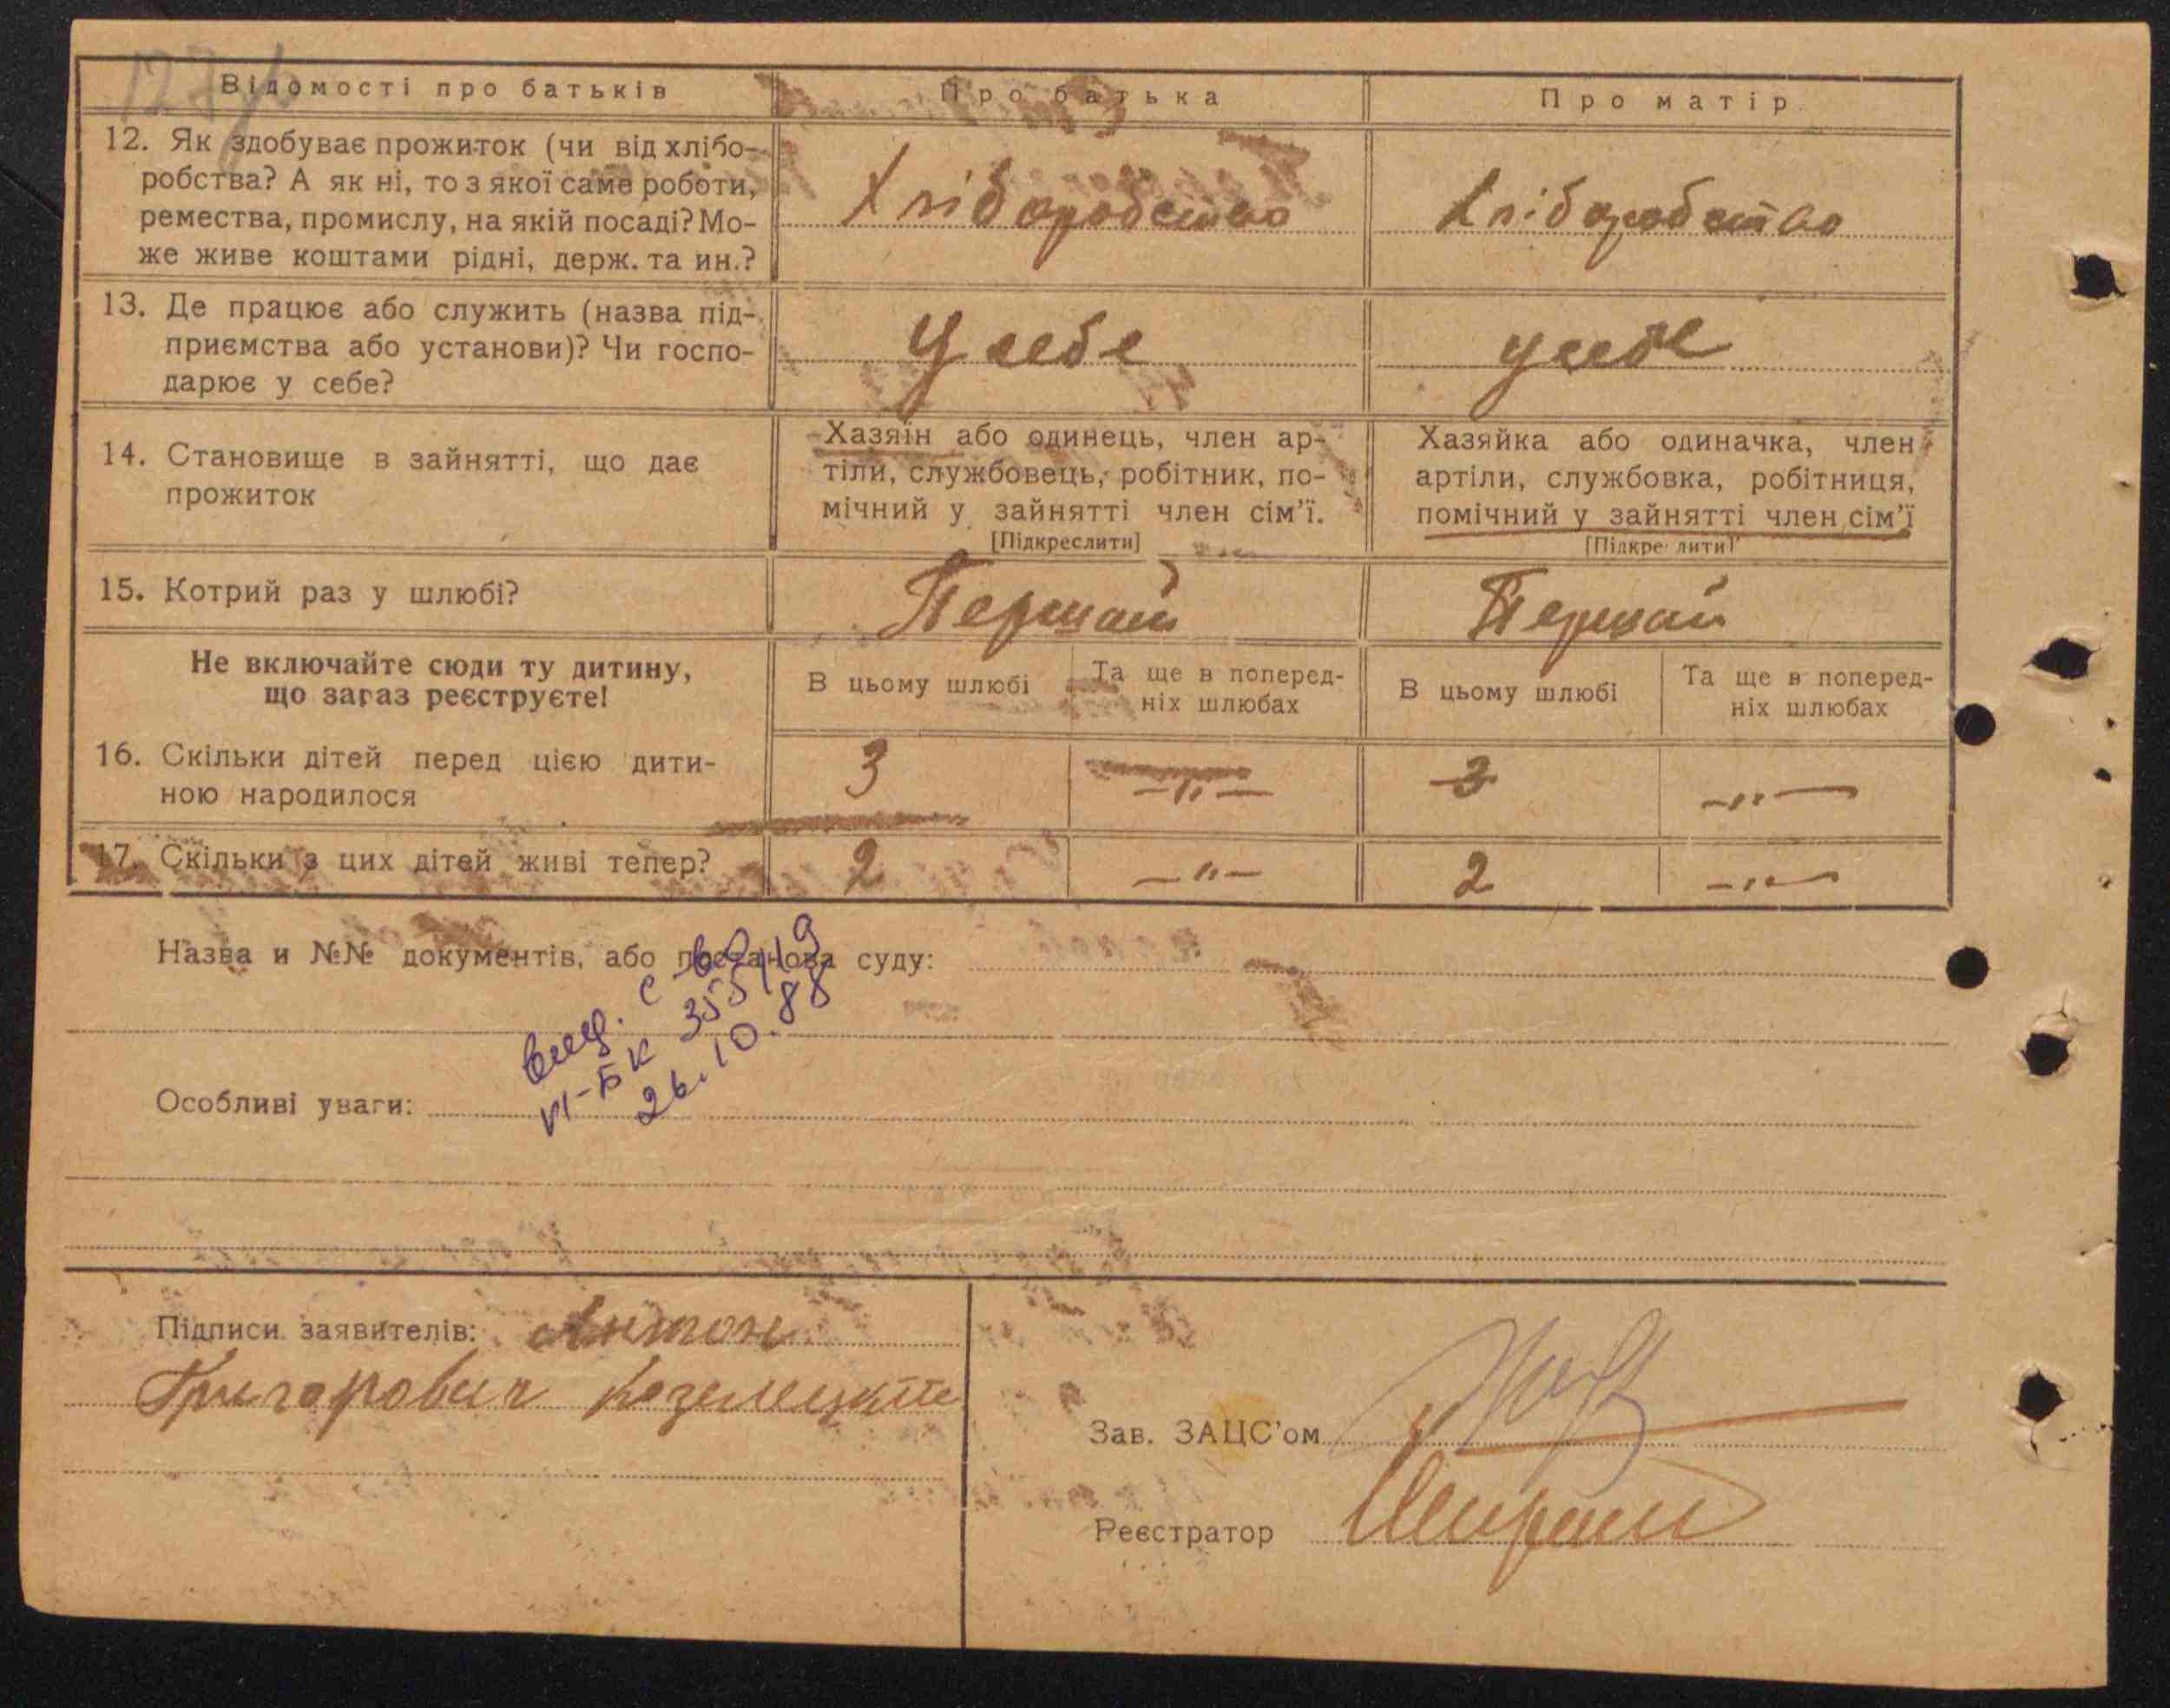 Відомості про батьків
Про батька
Про матір
12. Як здобуває прожиток (чи від хлібо-
робства? А як ні, то з якої саме роботи,
ремества, промислу, на якій посаді? Мо-
же живе коштами рідні, держ. та ин.?
Хліборобство
Хліборобство
13. Де працює або служить (назва під-
приємства або установи)? Чи госпо-
дарює у себе?
У себе
у себе
14. Становище в зайнятті, що дає
прожиток
Хазяїн або одинець, член ар-
тіли, службовець, робітник, по-
мічний у зайнятті член сім'ї.
[Підкреслити]
Хазяйка або одиначка, член
артіли, службовка, робітниця,
помічний у зайнятті член сім'ї
[Підкре лити]
15. Котрий раз у шлюбі?
Першай
Першай
Не включайте сюди ту дитину,
що зараз реєструєте!
В цьому шлюбі
Та ще в поперед-
ніх шлюбах
В цьому шлюбі
Та ще в поперед-
ніх шлюбах
16. Скільки дітей перед цією дити-
ною народилося
3
—"—
3
—"—
17. Скільки з цих дітей живі тепер?
2
—"—
2
—"—
Назва и №№ документів, або постанова суду:
выд. с-во
VI-БК 355119
26.10.88
Особливі уваги:
Підписи заявителів: Антон
Григорович
Зав. ЗАЦС'ом
Реєстратор